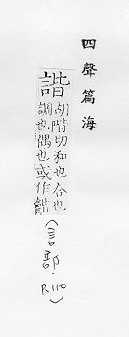 四聲篇海
諧
胡階切和也合也
調也偶也或作龤
(言部,P.110)